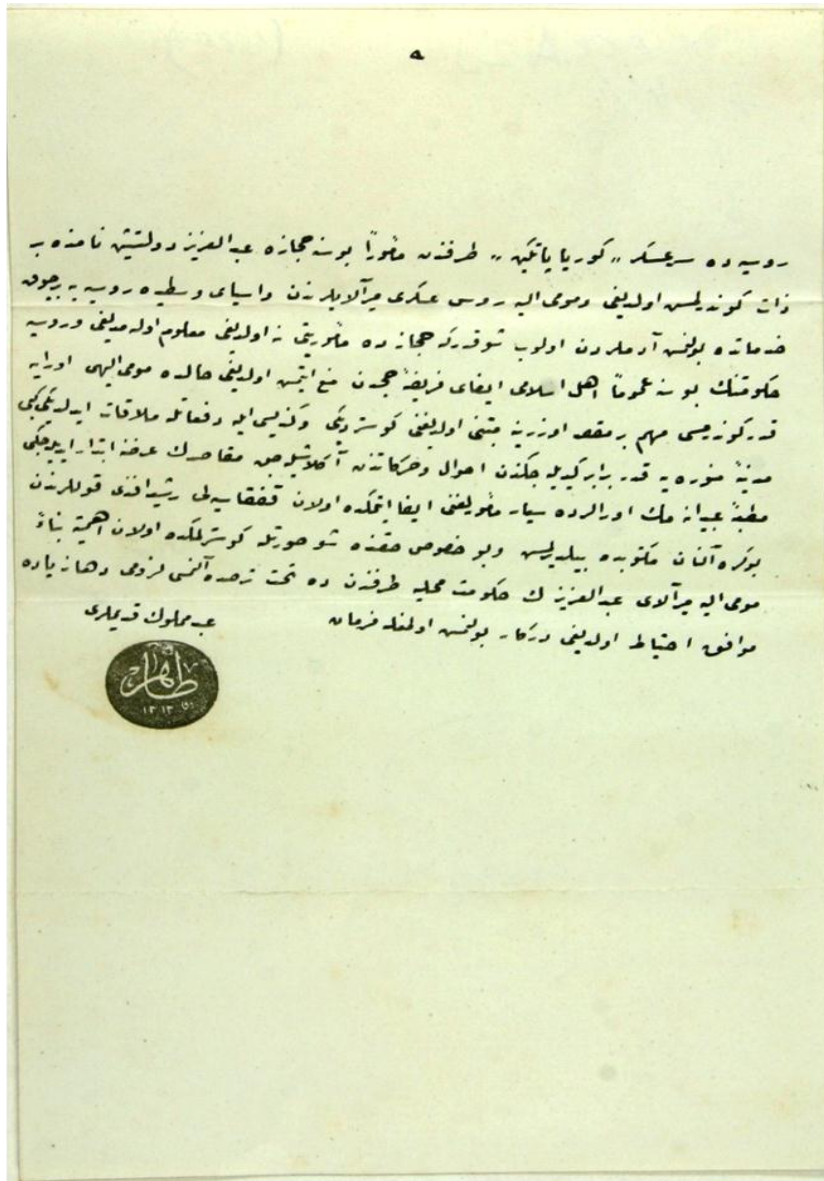 ﻫ
روسيه ده سرعسكر ,, كورياپاتكين ,, طرفندن مأموراً بو سنه حجازه عبد العزيز دولتشين نامنده بر
ذات كوندرلمش اولديغى ومومى اليه روس عسكرى ميرآلايلرندن واسياى وسطيده روسيه يه برچوق
خدماتده بولنمش آدملردن اولوب شو قدركه حجازده مأموريتى نه اولديغى معلوم اوله مديغى وروسيه
حكومتنك بو سنه عموماً اهل اسلامى ايفاى فريضۀ حجدن منع ايتمش اولديغى حالده مومى اليهى اورايه
قدر كوندرمسى مهم بر مقصد اوزرينه مبتنى اولديغنى كوسترديكى وكنديسى ايله دفعاتله ملاقات ايدلديكى كبى
مدينۀ منوره يه قدر برابر كيديله جكندن احوال وحركاتندن آكلاشيله جق مقاصدك عرضنه ابتدار ايديله جكى
مطبۀ عبيدانه مك اورالرده سيار مأموريتنى ايفا ايتمكده اولان قفقاسيه لى رشيد افندى قوللرندن
بوكره آلنان مكتوبده بيلديرلمش وبو خصوص حقنده شو صورتله كوسترلمكده اولان اهميته بناءً
مومى اليه ميرآلاى عبد العزيزك حكومت محليه طرفندن ده تحت ترصده آلنمسى لزومى دها زياده
موافق احتياط اولديغى دركار بولنمش اولمغله فرمان
عبد مملوك قديملرى
طاهر
١٣١٣